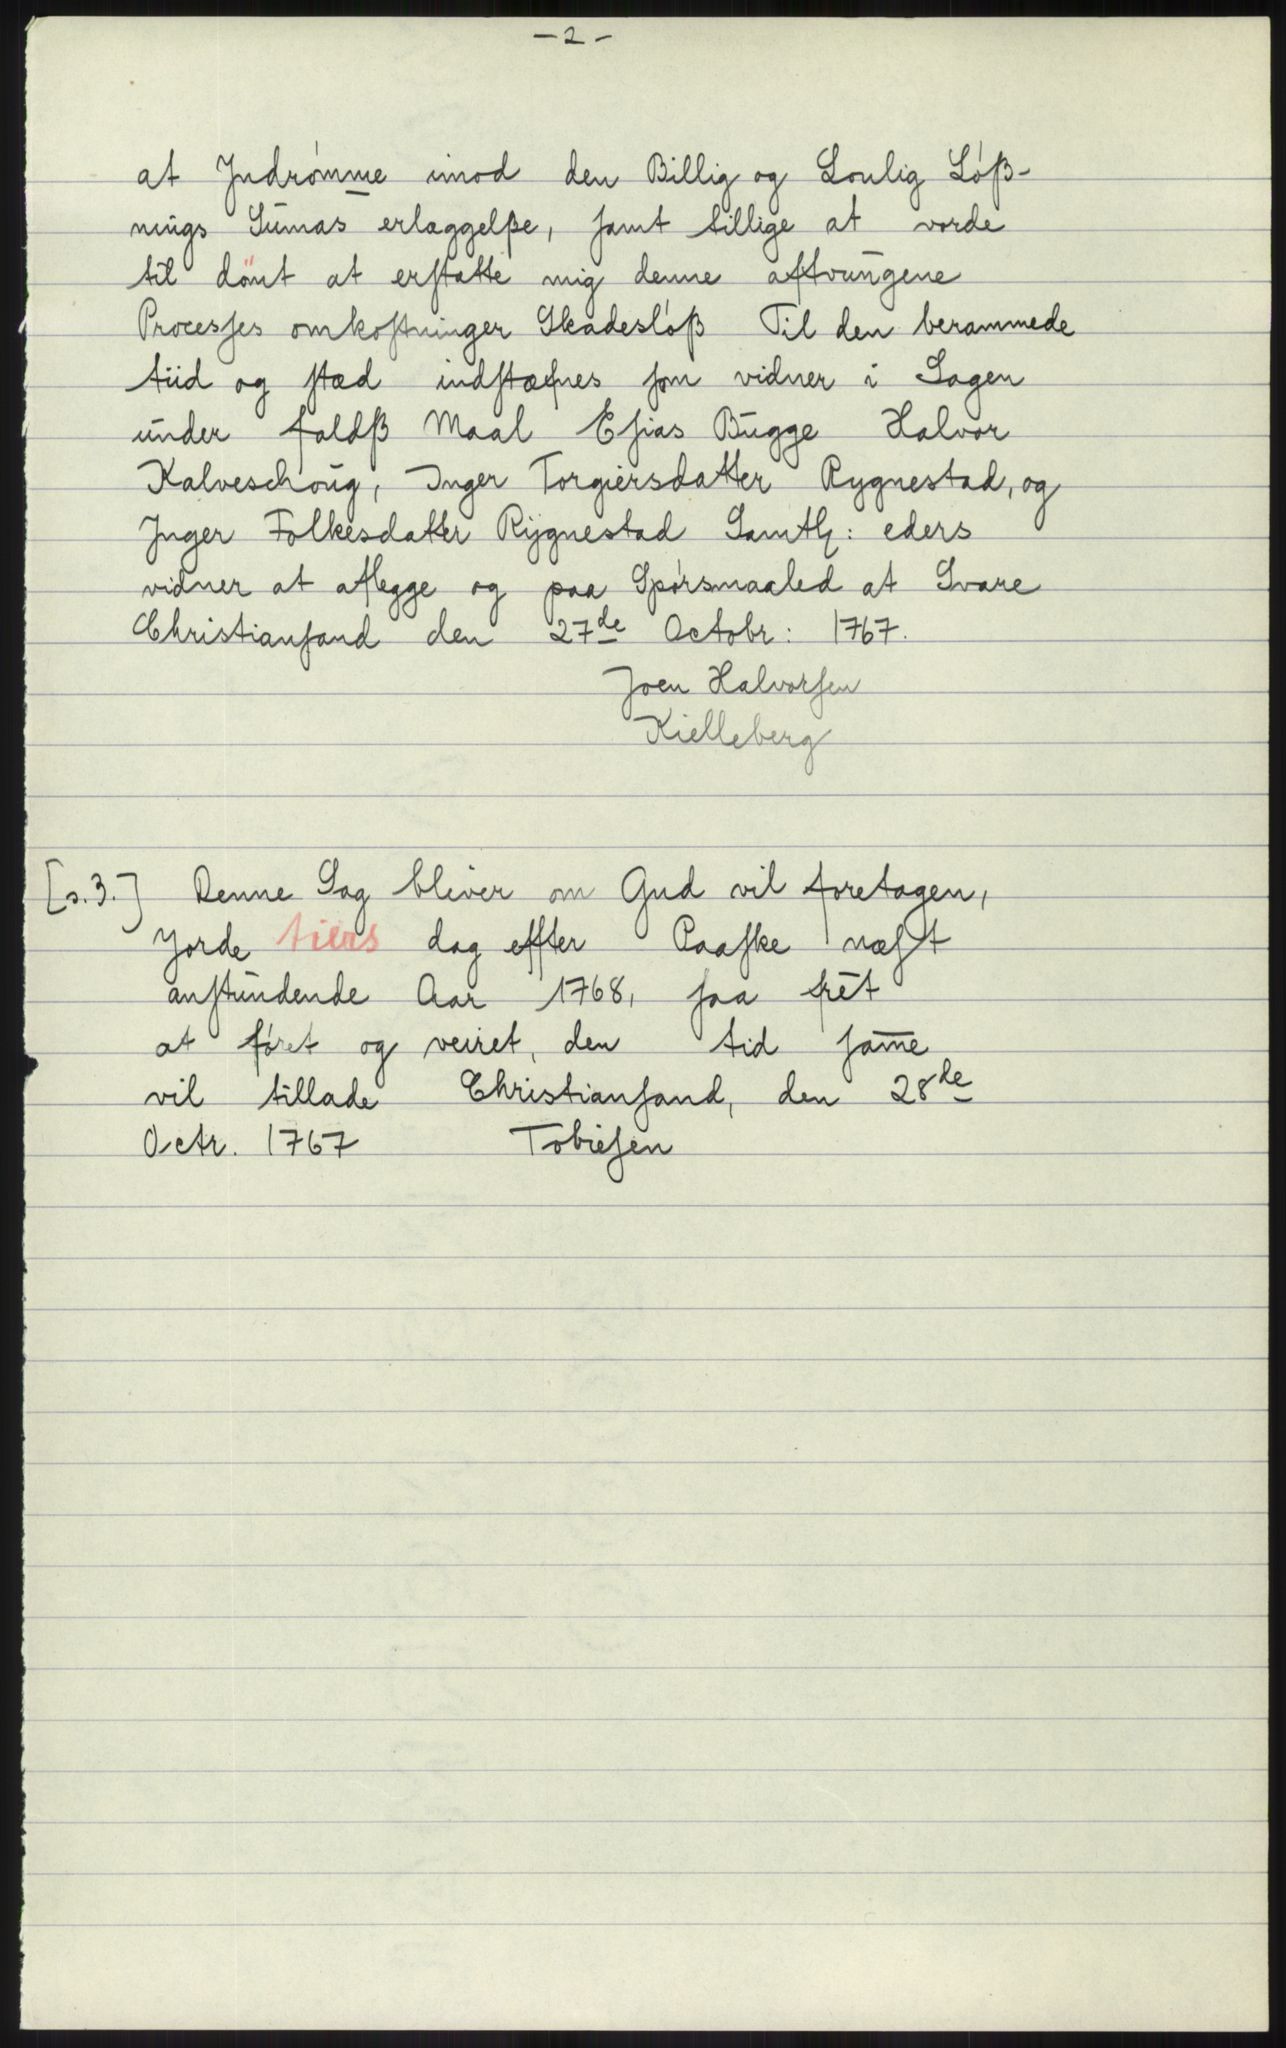 - 2 -
at Jndrómme imod den Billig og Loulig Lóß-
nings Sumas erlæggelße, samt tillige at vorde
til dömt at erstatte mig denne aftvungene
Processes omkostninger Skadeslóß Til den berammede
tiid og stæd indstæfnes som vidner i Sagen
under faldß Maal Esias Bugge Halvor
Kalveschoug, Inger Torgiersdatter Rygnestad, og
Jnger Folkesdatter Rygnestad Samtl: eders
vidner at aflegge og paa Spórsmaaled at Svare
Christiansand den 27de Octobr: 1767.
Joen Halvorsen
Kielleberg
[s. 3.] Denne Sag bliver om Gud vil foretagen,
Jorde tiers dag effter Paaske næst
anstundende Aar 1768, saa fret
at fóret og veiret, den tid same
vil tillade Christiansand, den 28de
Octr. 1767 Tobiesen